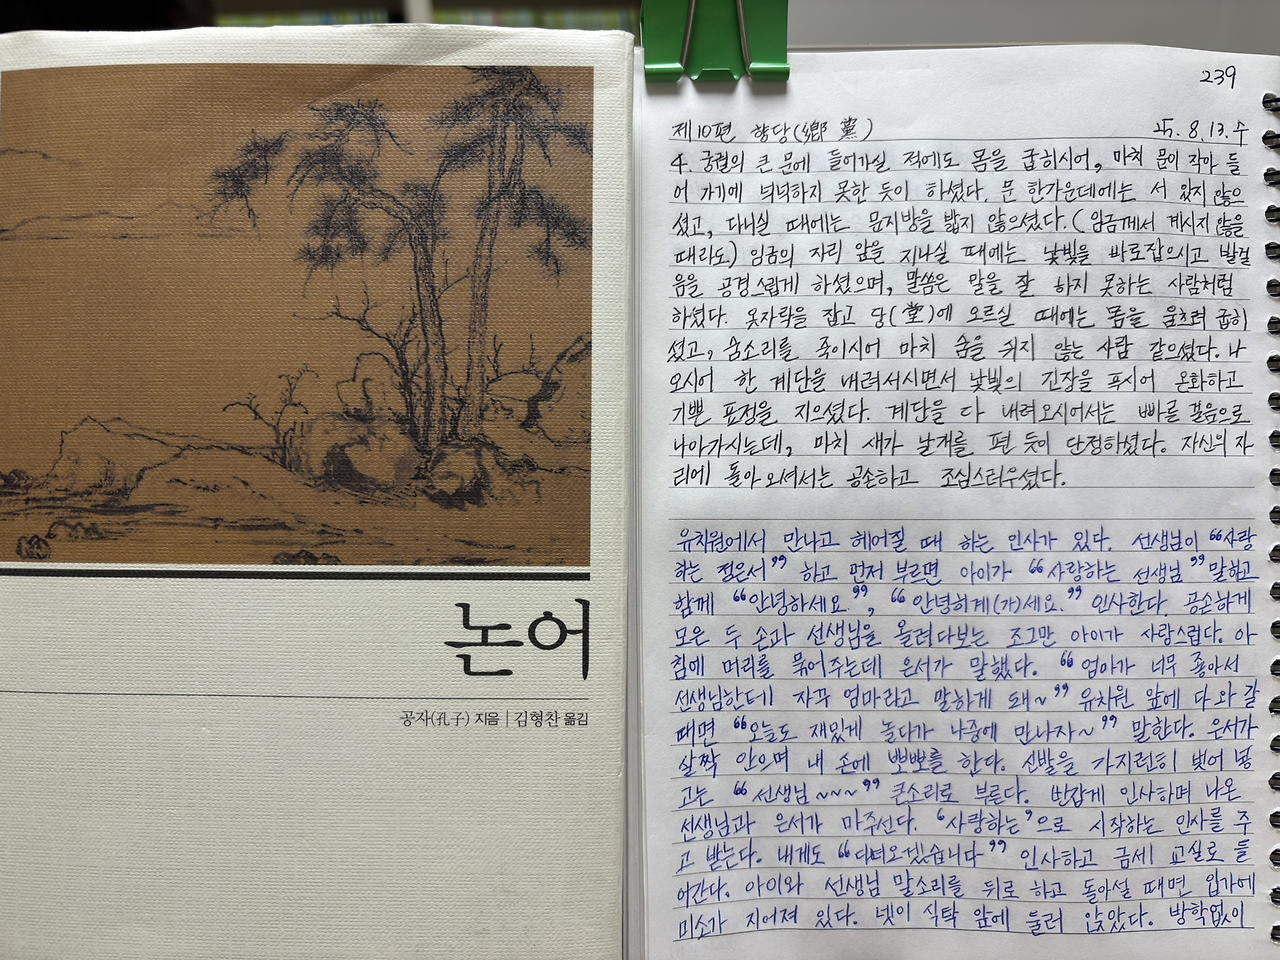 논어
공자(孔子) 지음 | 김형찬 옮김
239
제10편 향당(鄕黨)
25. 8. 13. 수
4. 궁궐의 큰 문에 들어가실 적에도 몸을 굽히시어, 마치 문이 작아 들
어 가기에 넉넉하지 못한 듯이 하셨다. 문 한가운데에는 서 있지 않으
셨고, 다니실 때에는 문지방을 밟지 않으셨다. (임금께서 계시지 않을
때라도) 임금의 자리 앞을 지나실 때에는 낯빛을 바로잡으시고 발걸
음을 공경스럽게 하셨으며, 말씀은 말을 잘 하지 못하는 사람처럼
하셨다. 옷자락을 잡고 당(堂)에 오르실 때에는 몸을 움츠려 굽히
셨고, 숨소리를 죽이시어 마치 숨을 쉬지 않는 사람 같으셨다. 나
오시어 한 계단을 내려서시면서 낯빛의 긴장을 푸시어 온화하고
기쁜 표정을 지으셨다. 계단을 다 내려오시어서는 빠른 걸음으로
나아가시는데, 마치 새가 날개를 편 듯이 단정하셨다. 자신의 자
리에 돌아오셔서는 공손하고 조심스러우셨다.
유치원에서 만나고 헤어질 때 하는 인사가 있다. 선생님이 “사랑
하는 정은서” 하고 먼저 부르면 아이가 “사랑하는 선생님” 말하고
함께 “안녕하세요.”, “안녕히계(가)세요.” 인사한다. 공손하게
모은 두 손과 선생님을 올려다보는 조그만 아이가 사랑스럽다. 아
침에 머리를 묶어주는데 은서가 말했다. “엄마가 너무 좋아서
선생님한테 자꾸 엄마라고 말하게 돼~” 유치원 앞에 다 와 갈
때면 “오늘도 재밌게 놀다가 나중에 만나자~” 말한다. 은서가
살짝 안으며 내 손에 뽀뽀를 한다. 신발을 가지런히 벗어 넣
고는 “선생님~~~” 큰소리로 부른다. 반갑게 인사하며 나온
선생님과 은서가 마주선다. ‘사랑하는’으로 시작하는 인사를 주
고 받는다. 내게도 “다녀오겠습니다” 인사하고 금세 교실로 들
어간다. 아이와 선생님 말소리를 뒤로 하고 돌아설 때면 입가에
미소가 지어져 있다. 넷이 식탁 앞에 둘러 앉았다. 방학없이